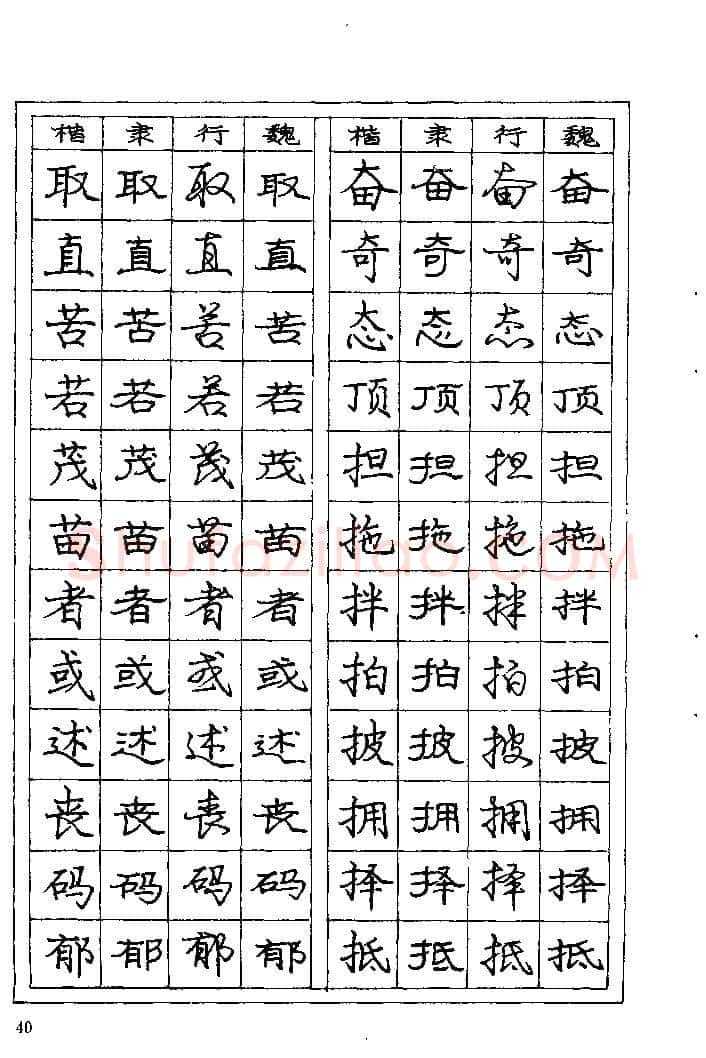 楷 隶 行 魏 楷 隶 行 魏
取 取 取 取 奋 奋 奋 奋
直 直 直 直 奇 奇 奇 奇
苦 苦 苦 苦 态 态 态 态
若 若 若 若 顶 顶 顶 顶
茂 茂 茂 茂 担 担 担 担
苗 苗 苗 苗 拖 拖 拖 拖
者 者 者 者 拌 拌 拌 拌
或 或 或 或 拍 拍 拍 拍
述 述 述 述 披 披 披 披
丧 丧 丧 丧 拥 拥 拥 拥
码 码 码 码 择 择 择 择
郁 郁 郁 郁 抵 抵 抵 抵
shufaziliao.COM
40